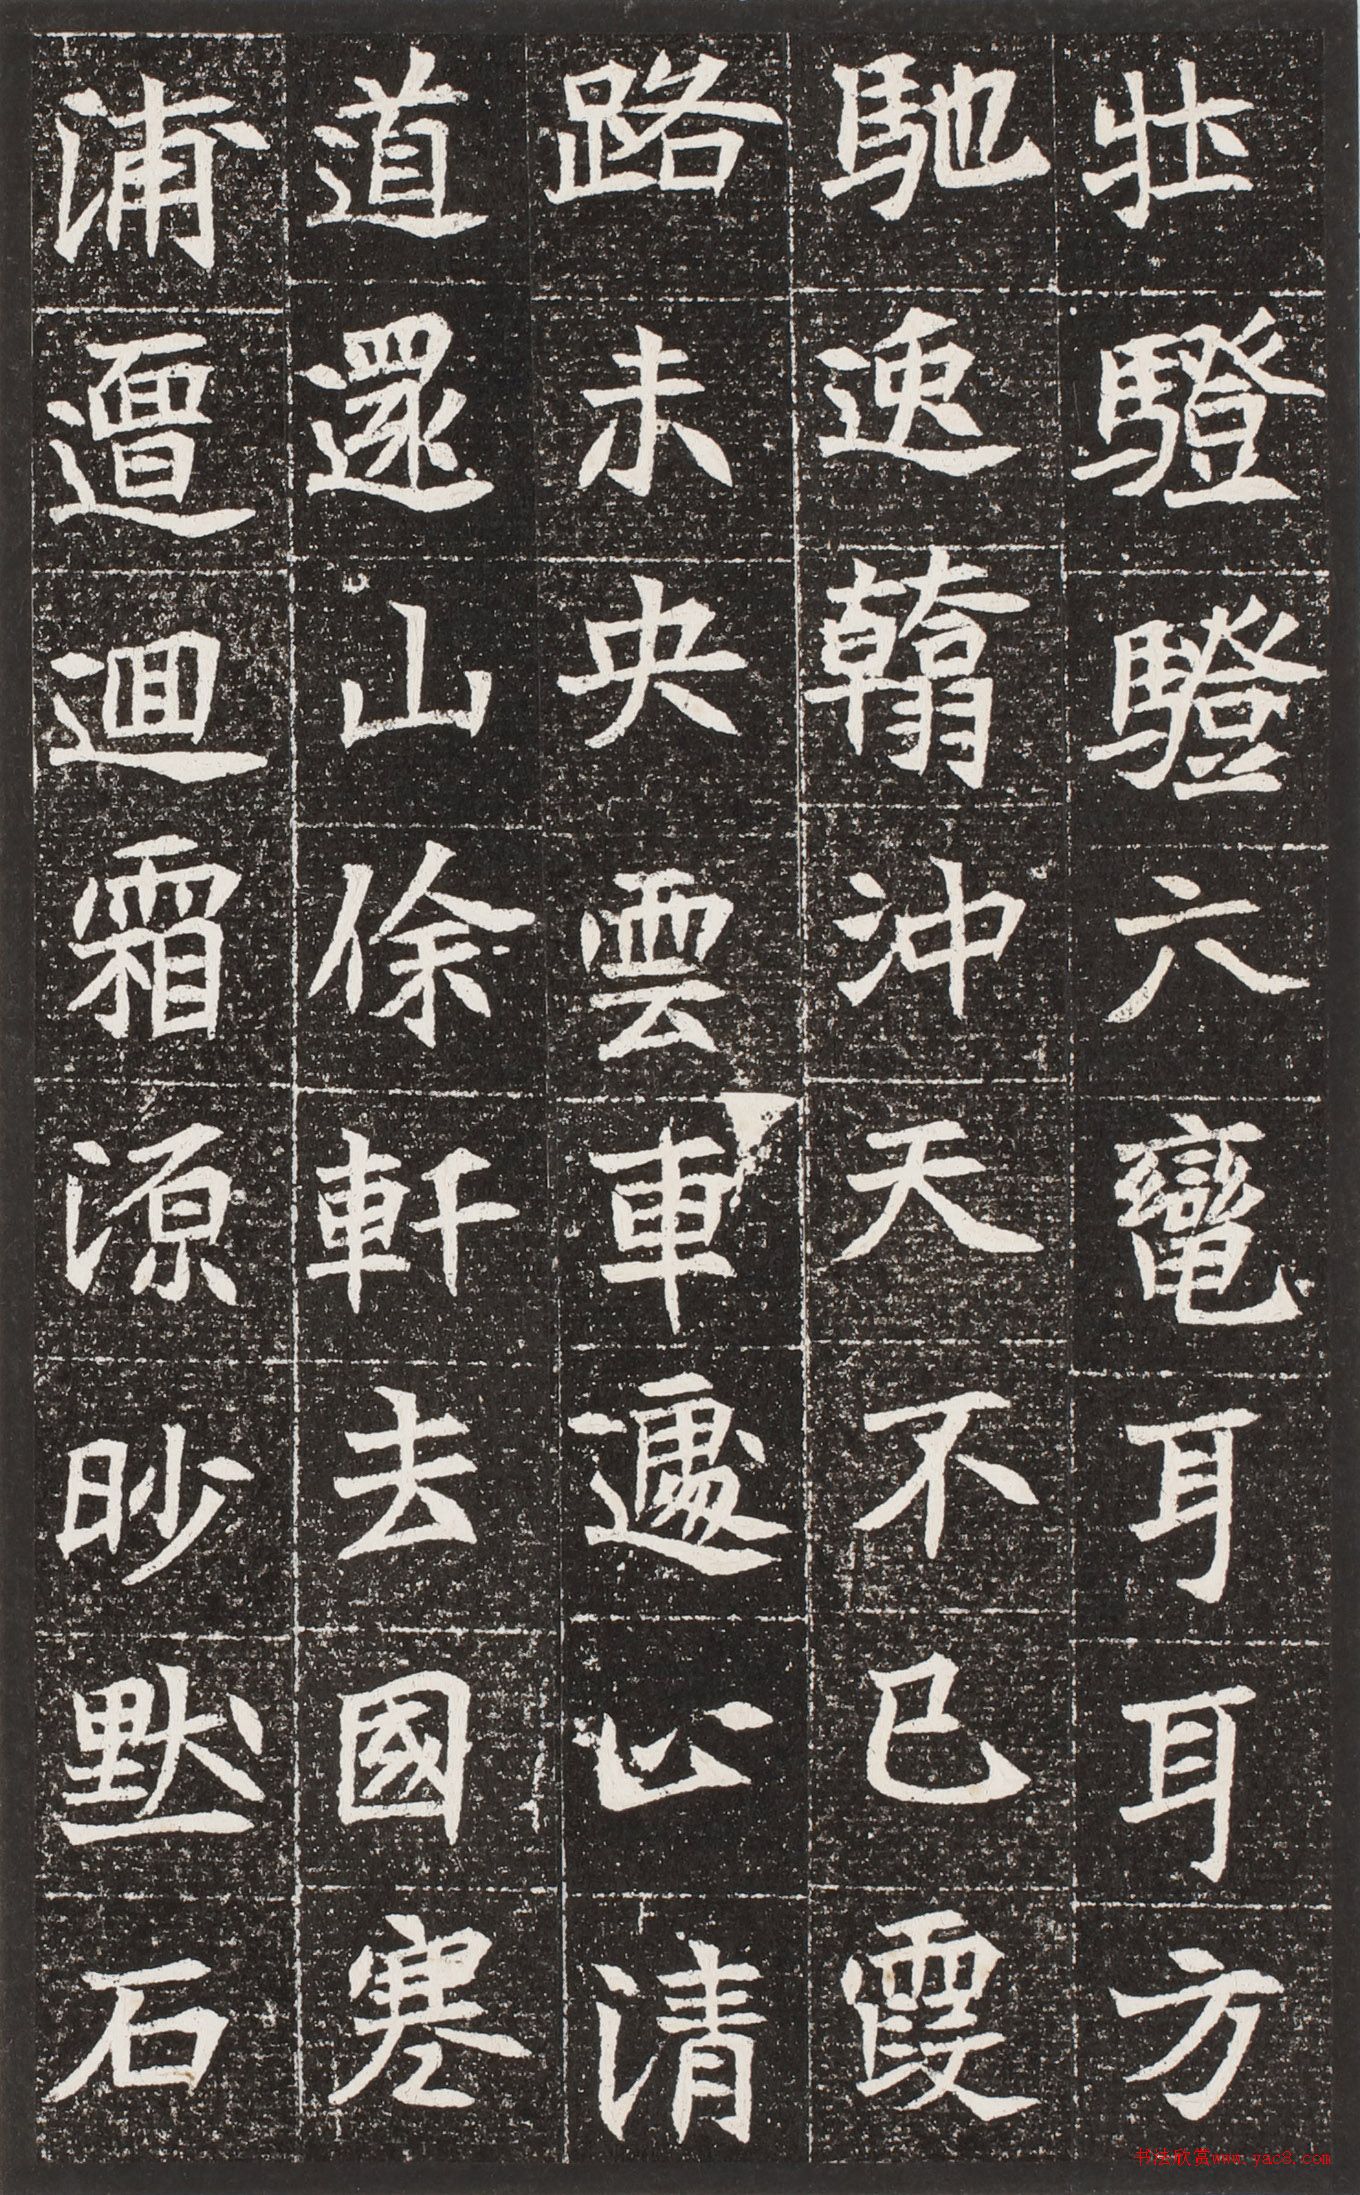 壯驓驓六轡耳耳方
馳速翰沖天不已霞
路未央雲車遽止清
道還山徐軒去國寒
浦邅迴霜源眇默石
书法欣赏www.yac8.com